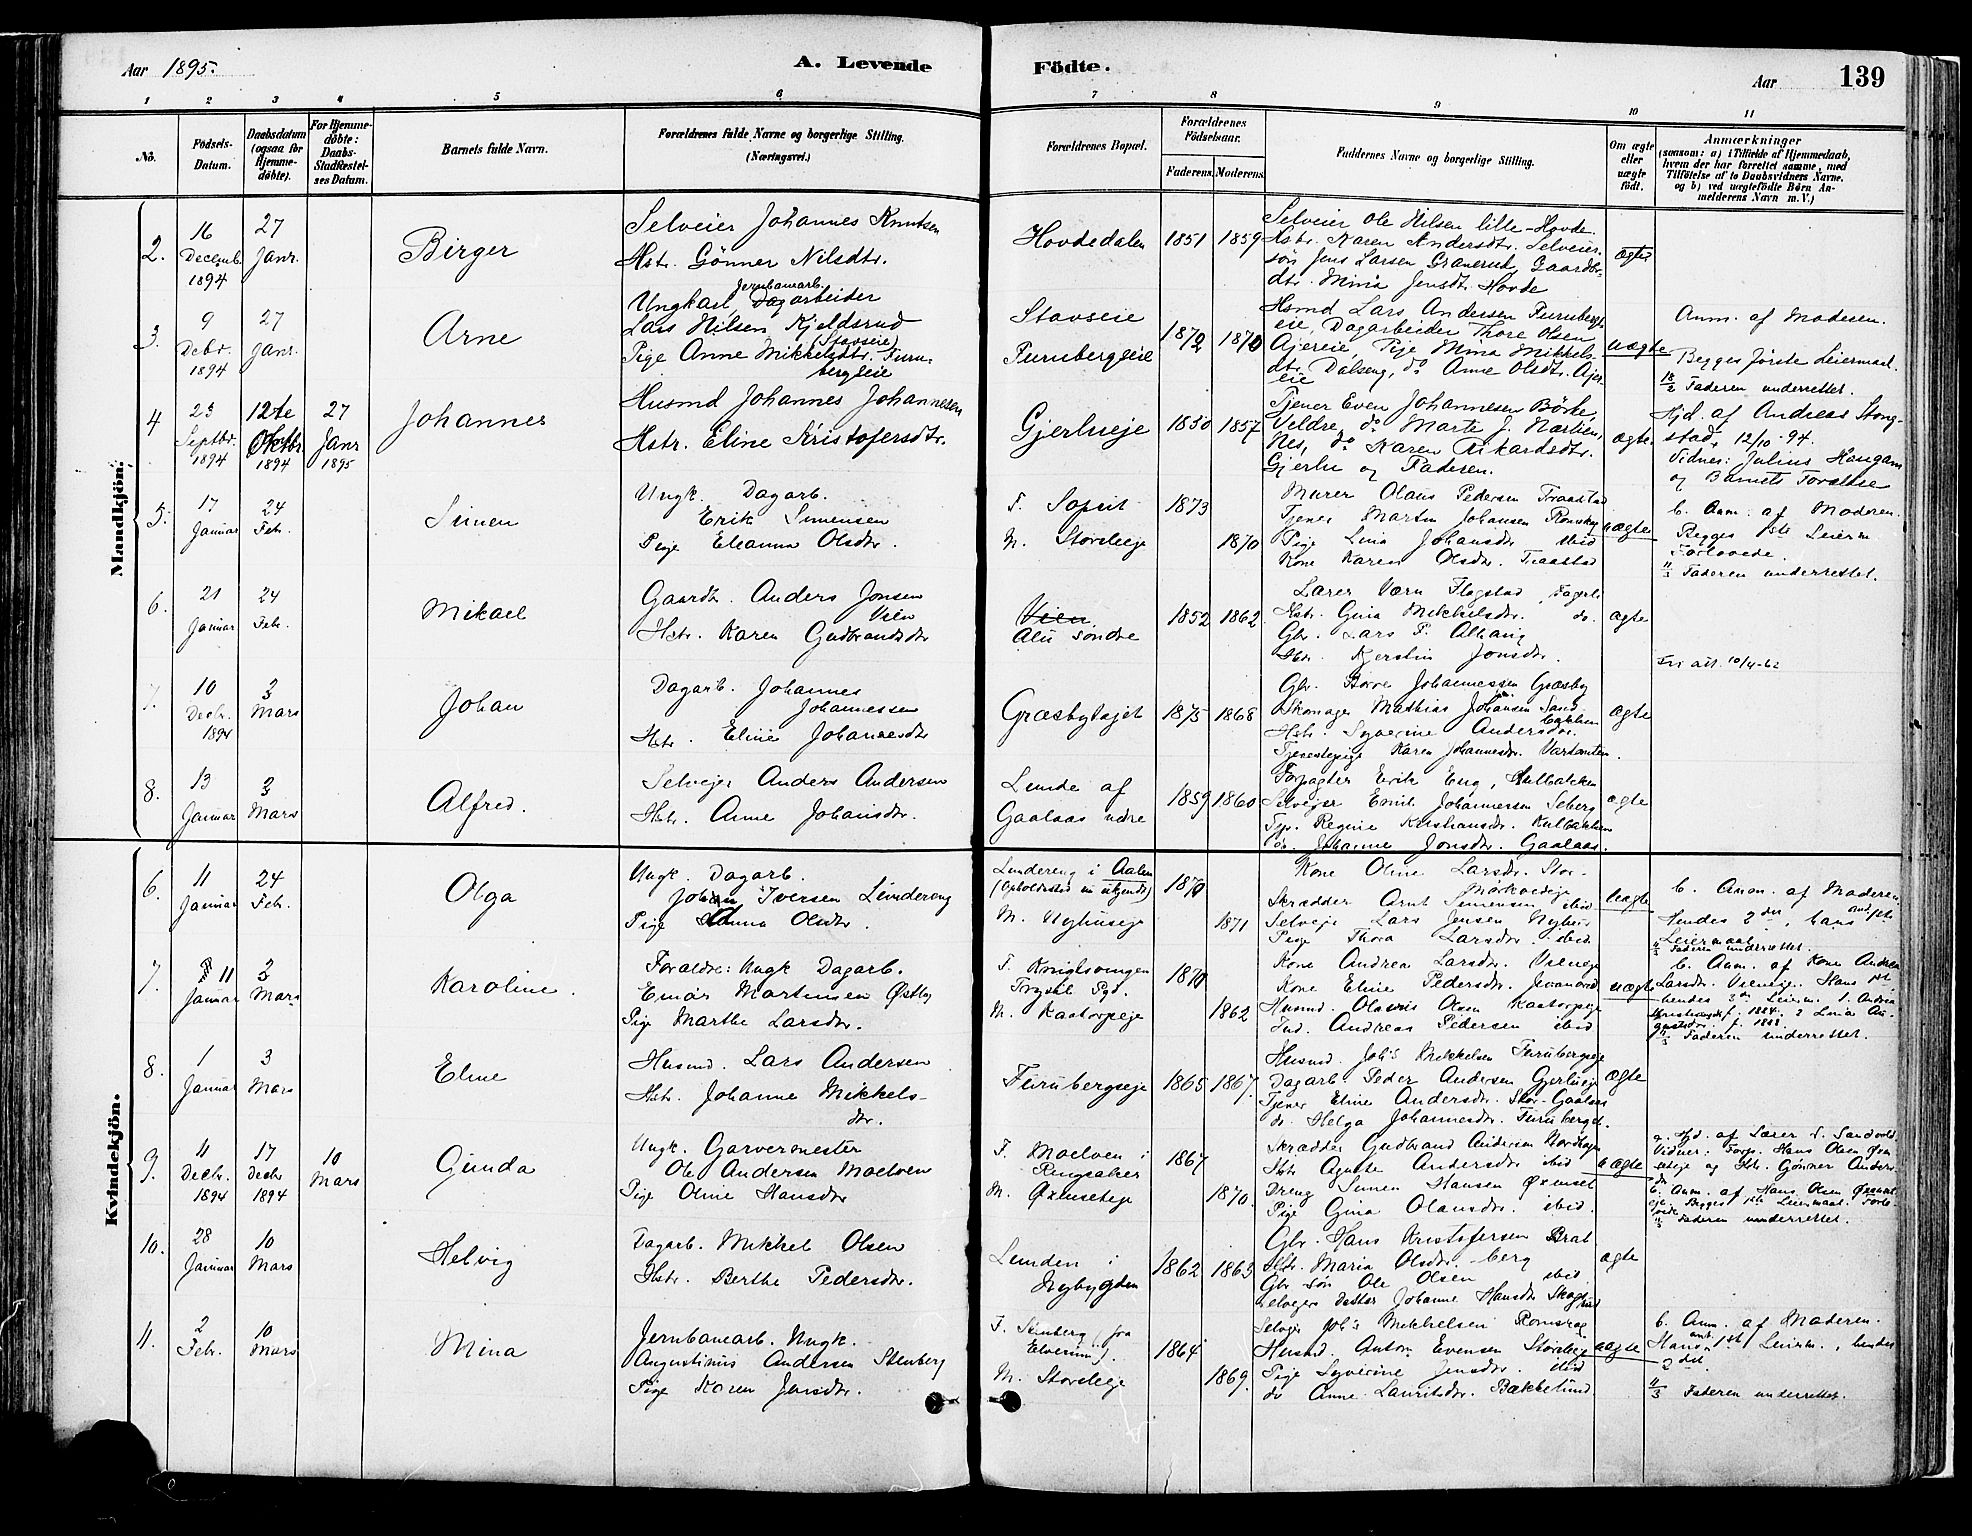 Aar 1895.
A. Levende
Födte.
Aar
139
1 2 3 4 5 6 7 8 9 10 11
No.
Födsels-
Datum.
Daabsdatum
(ogsaa for
Hjemme-
döbte).
For Hjemme-
döbte:
Daabs-
Stadfæstel-
ses Datum.
Barnets fulde Navn.
Forældrenes fulde Navne og borgerlige Stilling.
(Næringsvei.)
Forældrenes Bopæl.
Forældrenes
Födselsaar.
Faderens.
Moderens.
Faddernes Navne og borgerlige Stilling.
Om ægte
eller
uægte
födt.
Anmærkninger
(saasom: a) i Tilfælde af Hjemmedaab,
hvem der har forrettet samme, med
Tilföielse af to Daabsvidners Navne.
og b) ved uægtefödte Börn An-
melderens Navn m. V.)
Mandkjön.
2.
16
Decemb.
1894
27
Janr.
Birger
Selveier Johannes Knutsen
Hstr. Gönner Nilsdtr.
Hovdedalen
1851
1859
Selveier Ole Nilsen lille-Hovde.
Hstr. Karen Andersdtr. Selveier-
sön Jens Larsen Granerud, Gaardbr-
dtr. Mina Jensdtr. Hovde
ægte
3.
9
Debr.
1894
27
Janr.
Arne
Jernbanearb.
Ungkarl Dagarbeider
Lars Nilsen Kjeldsrud
(Stavseie)
Pige Anne Mikkelsdtr. Furu-
bergseie
Stavseie
Furubergseie
1872
1870
Hsmd Lars Andersen Furubergs-
eie, Dagarbeider Thore Olsen
Ajereie, Pige Mina Mikkels-
dtr. Dalseng, do Anne Olsdtr. Ajer
eie
uægte
Anm. af Moderen.
Begges förste Leiermaal.
18/2 Faderen underrettet.
4
23
Septbr.
1894
12te
Oktbr.
1894
27
Janr
1895
Johannes
Husmd Johannes Johannesen
Hstr. Eline Kristofersdtr.
Gjerlueje
1850
1857
Tjener Even Johannesen Börke,
Veldre, do Marte J. Nærlien,
Nes, do Karen Rikardsdtr.
Gjerlu og Faderen.
ægte
Hjd. af Andreas Stong-
stad, 12/10-94.
Vidner: Julius Haugam
og Barnets Forældre
5.
17
Januar
24
Feb.
Simen
Ungk. Dagarb.
Erik Simensen
Pige Eleanna Olsdtr.
F. Sopsit
M. Storsleje
1873
1870
Murer Olaus Pedersen Traastad
Tjener Martin Johansen Romskog
Pige Lina Johansdtr ibid
Kone Karen Olsdtr. Traastad
uægte
b. Anm. af Moderen.
Begges 1ste Leierm
Forlovede.
11/3 Faderen underrettet.
6.
21
Januar
24
Feb.
Mikael
Gaardb. Anders Jonsen
Vien
Hstr. Karen Gudbrandsdtr
Vien
Alu söndre
1852
1862
Lærer Værn Flagstad, Fagerli
Hstr. Gina Mikkelsdtr. do.
Gbr. Lars P. Alhaug
Hstr. Kjerstin Jonsdtr.
ægte
Fri att. 10/4-62
7.
10
Decbr.
1894
3
Mars
Johan
Dagarb. Johannes
Johannessen
Hstr. Eline Johannesdtr
Græsbylajet
1875
1868
Gbr. Börre Johannessen Græsby
Skomager Mathias Johansen Sand-
bakken
Hstr. Syverine Andersdtr.
Tjenestepige Karen Johannesdtr.
ægte
8.
13
Januar
3
Mars
Alfred.
Selvejer Anders Andersen
Hstr. Anne Johansdtr.
Lunde af
Gaalaas ndre
1859
1860
Forpagter Erik Eng, Kulbakken
Selvejer Emil Johannessen Seberg
Fpr. Regine Kristiansdtr. Kulbakken
do. Johanne Jonsdtr. Gaalaas.
ægte
Kvindekjön.
6.
11
Januar
24
Feb.
Olga
Ungk. Dagarb.
Johan Iversen Lundereng
Pige Anna Olsdtr.
Lundereng i Aalen
(Opholdssted nu ukjendt)
M. Nyhuseje
1870
1871
Kone Oline Larsdtr. Stor-
Mörkvedeje
Skrædder Arnt Simensen ibid
Selvejer Lars Jensen Nyhus
Pige Thora Larsdtr. ibid.
uægte
b. Anm. af Moderen
Hendes 2det, hans 1ste
Leiermaal
11/3 Faderen underrettet.
7.
11
Januar
3
Mars
Karoline.
Forældre: Ungk Dagarb.
Einar Martensen Östby
Pige Marthe Larsdtr.
F. Kniglsvingen
Trysil Pgd.
M. Kaatorpeje
1870
1862
Kone Andrea Larsdtr. Vieneje
Kone Eline Pedersdtr.
Husmd. Olaves Olsen Kaatorpeje
Ind. Andreas Pedersen ibid
uægte
b. Anm. af Kone Andrea
Larsdtr. Vieneje. Hans 1ste,
hendes 3die Leierm. 1. Andrea
f. 1884. 2 Lina Au-
gustsdtr. f. 1888.
11/3 Faderen underrettet.
8.
1
Januar
3
Mars
Eline
Husmd. Lars Andersen
Hstr. Johanne Mikkels-
dtr.
Furubergseje
1865
1867.
Husmd. Joh's Mikkelsen Furubergseje
Dagarb. Peder Andersen Gjerlueje
Tjener Eline Andersdtr. Stor-Gaalaas
do. Helga Johannesdtr. Furuberget.
ægte
9.
11
Decbr.
1894
17
Decbr
1894
10
Mars
Gunda
Ungk. Garvermester
Ole Andersen Moelven
Pige Oline Hansdtr
F. Moelven i
Ringsaker
M. Öxenseteje
1867
1870.
Skrædder Gudbrand Andersen Nordhagen
Hstr Agnete Andersdtr ibid
Dreng Simen Hansen Öxenset
Pige Gina Olausdtr. ibid.
uægte
a. Hjd. af Lærer S. Sandvold
Vidner: Forp. Hans Olsen Öxen-
seteje og Hstr. Gönner Anders-
dtr
b. Anm. af Hans Olsen Öxenset
eje. Begges 1ste Leiermaal. Forlo-
vede
11/3 Faderen underrettet.
10.
28
Januar
10
Mars
Helvig
Dagarb. Mikkel Olsen
Hstr. Berthe Pedersdtr.
Lunden i
Nybygden
1862
1863
Gbr. Hans Kristofersen Brat
Hstr. Maria Olsdtr. -berg
Gbr sön Ole Olsen ibid
Selvejers datter Johanne Hansdtr Skogslund
ægte
11.
2
Febr.
10
Mars
Mina
Jernbanearb. Ungk.
Augustinus Andersen Stenberg
Pige Karen Jensdtr.
F. Stenberg (fra
Elverum).
M. Storsleje
1864
1869.
Selvejer Joh's Mikkelsen Romskog
Husmd. Anton Evensen Storsleje
Pige Syverine Jensdtr. ibid
do Anne Lauritsdtr. Bækkelund
uægte
b. Anm. af Moderen.
Hans 1ste Leierm., hendes
2det.
11/3 Faderen underrettet.